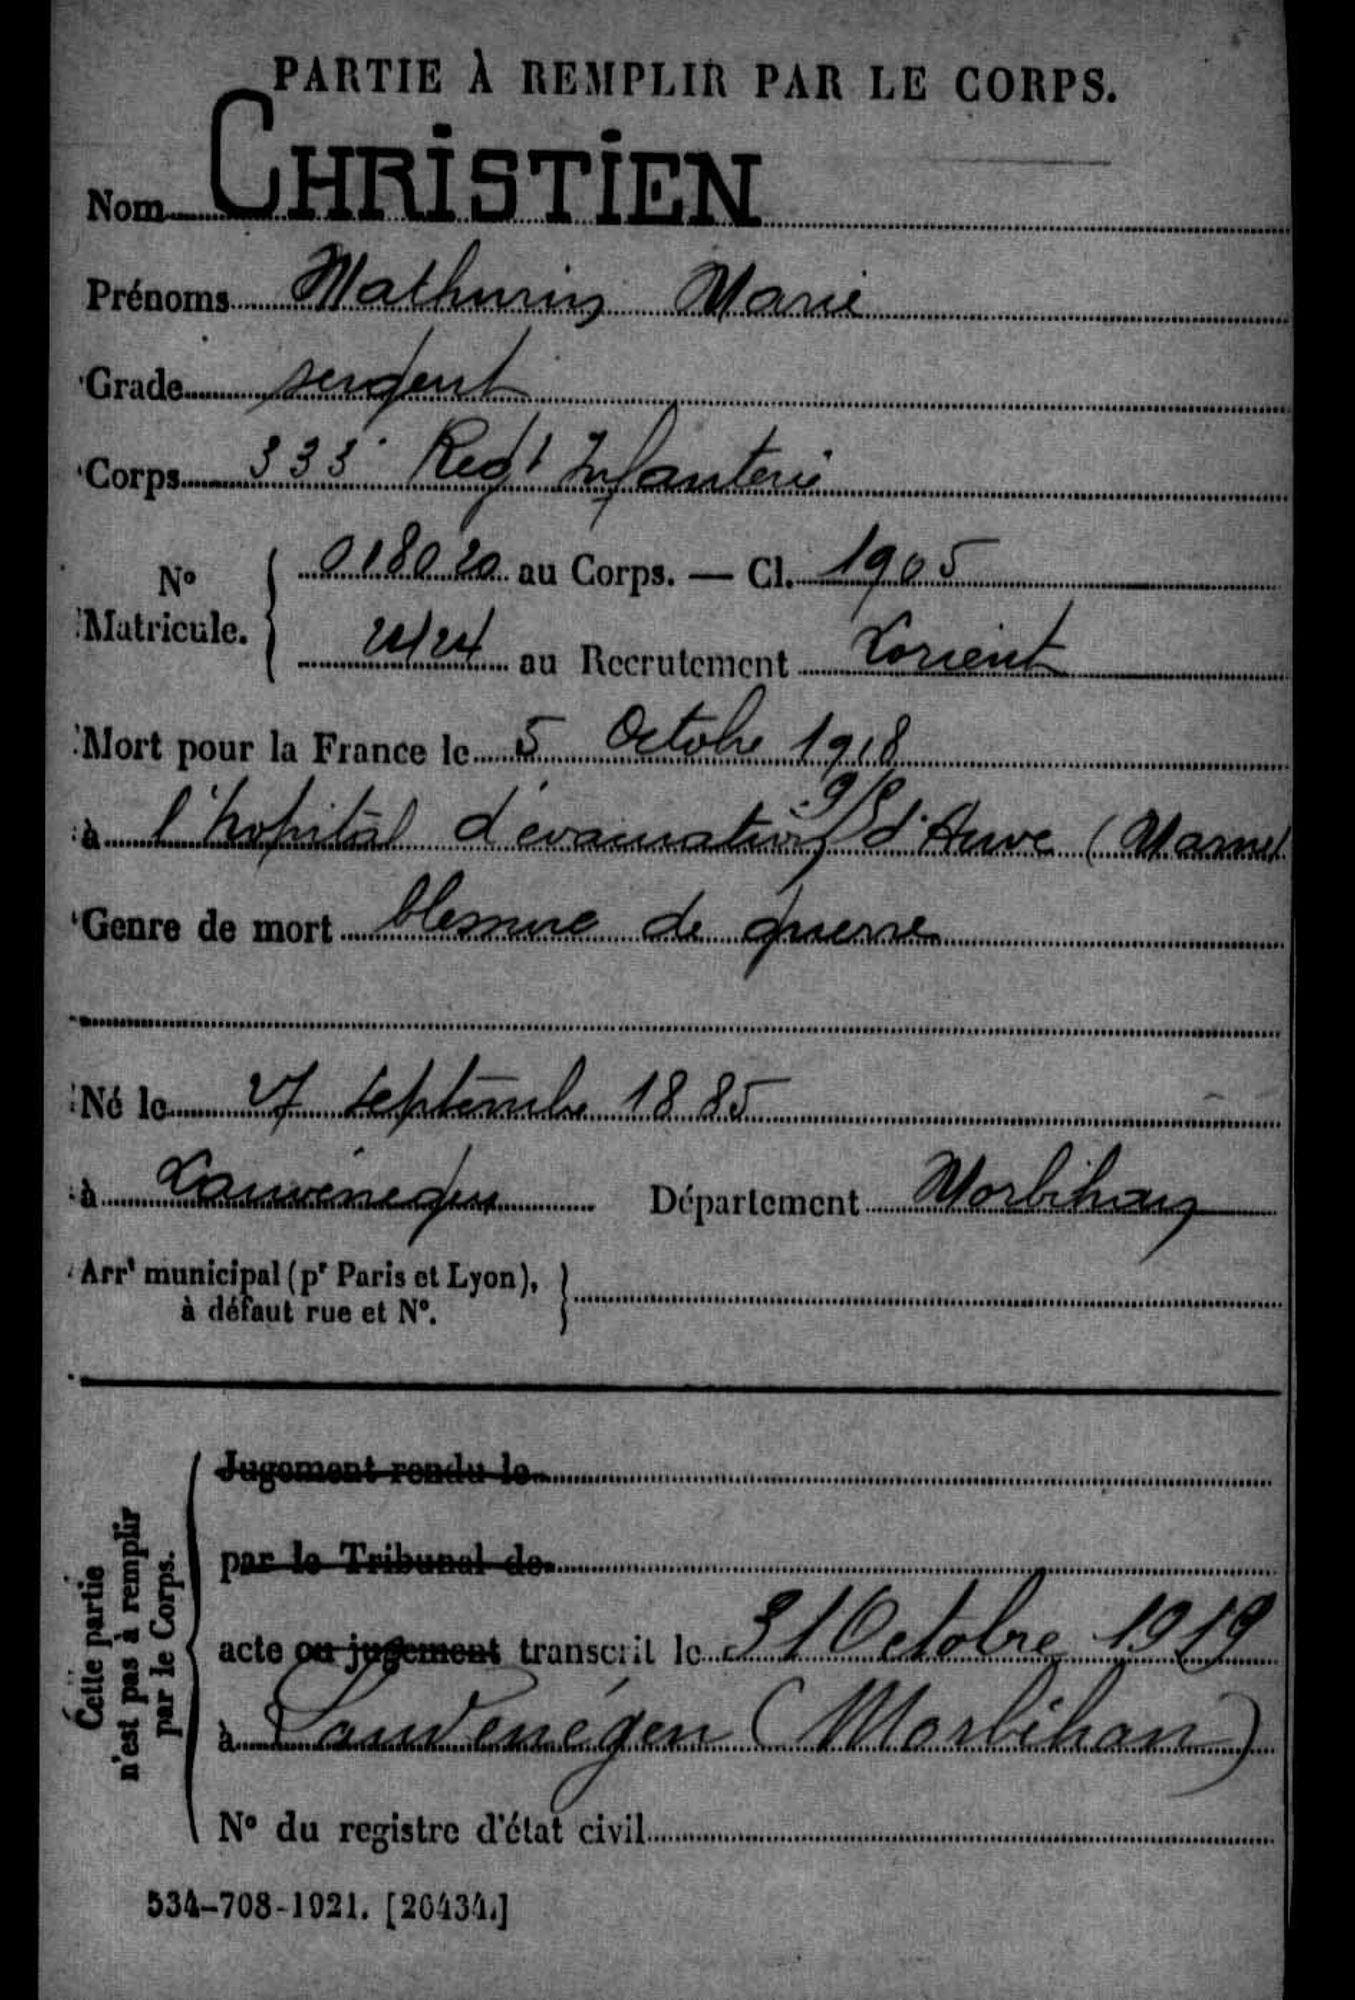 PARTIE À REMPLIR PAR LE CORPS.
Nom CHRISTIEN
Prénoms Mathurin Marie
Grade sergent
Corps 333e Regt Infanterie
No Matricule. 018020 au Corps. — Cl. 1905
au Recrutement Lorient
Mort pour la France le 5 Octobre 1918
à l'hopital d'évacuation d'Auve (Marne)
Genre de mort blessure de guerre
Né le 27 septembre 1885
à Lanvenegen Département Morbihan
Arrt municipal (pr Paris et Lyon),
à défaut rue et No.
Cette partie
n'est pas à remplir
par le Corps.
Jugement rendu le
par le Tribunal de
acte ou jugement transcrit le 31 Octobre 1919
à Lanvénégen (Morbihan)
No du registre d'état civil
534-708-1921. [26434.]